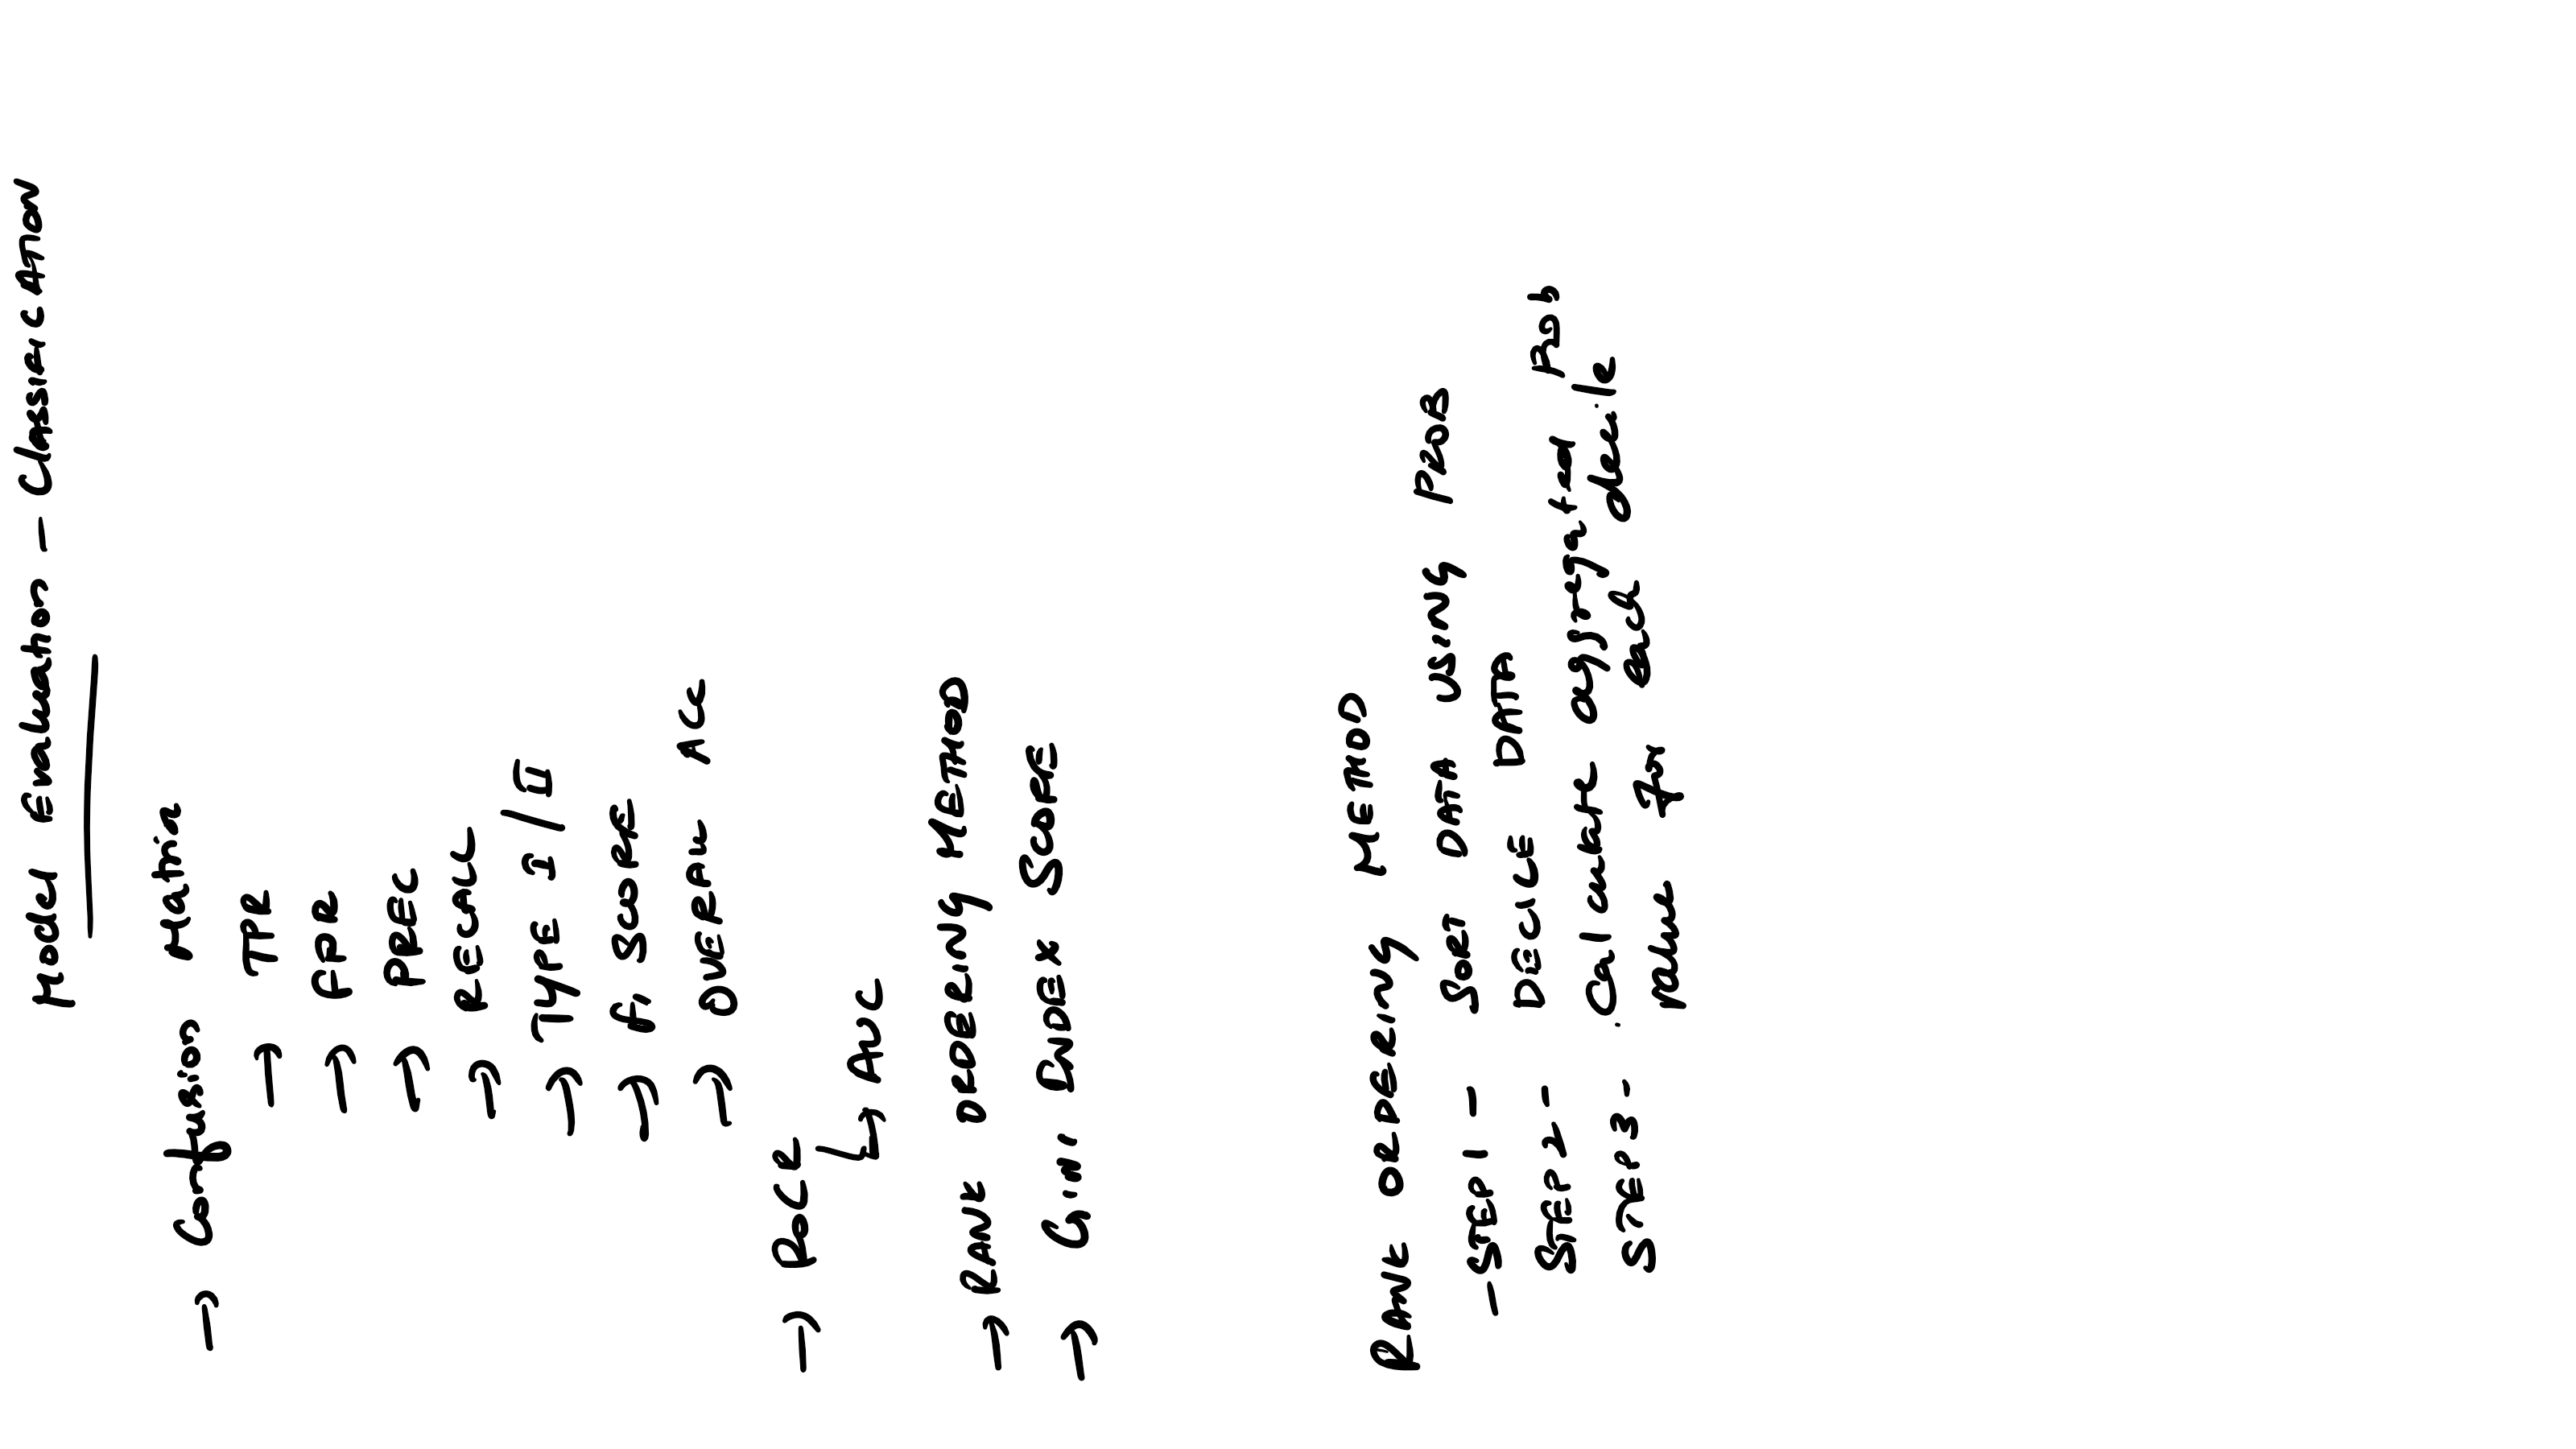 Model Evaluation - Classification
→ Confusion Matrix
→ TPR
→ FPR
→ PREC
→ RECALL
→ TYPE I / II
→ F1 SCORE
→ OVERALL ACC
→ ROCR
↳ AUC
→ RANK ORDERING METHOD
→ Gini INDEX SCORE
RANK ORDERING METHOD
- STEP 1 - SORT DATA USING PROB
STEP 2 - DECILE DATA
STEP 3 - Calculate aggregated Prob
value for each decile